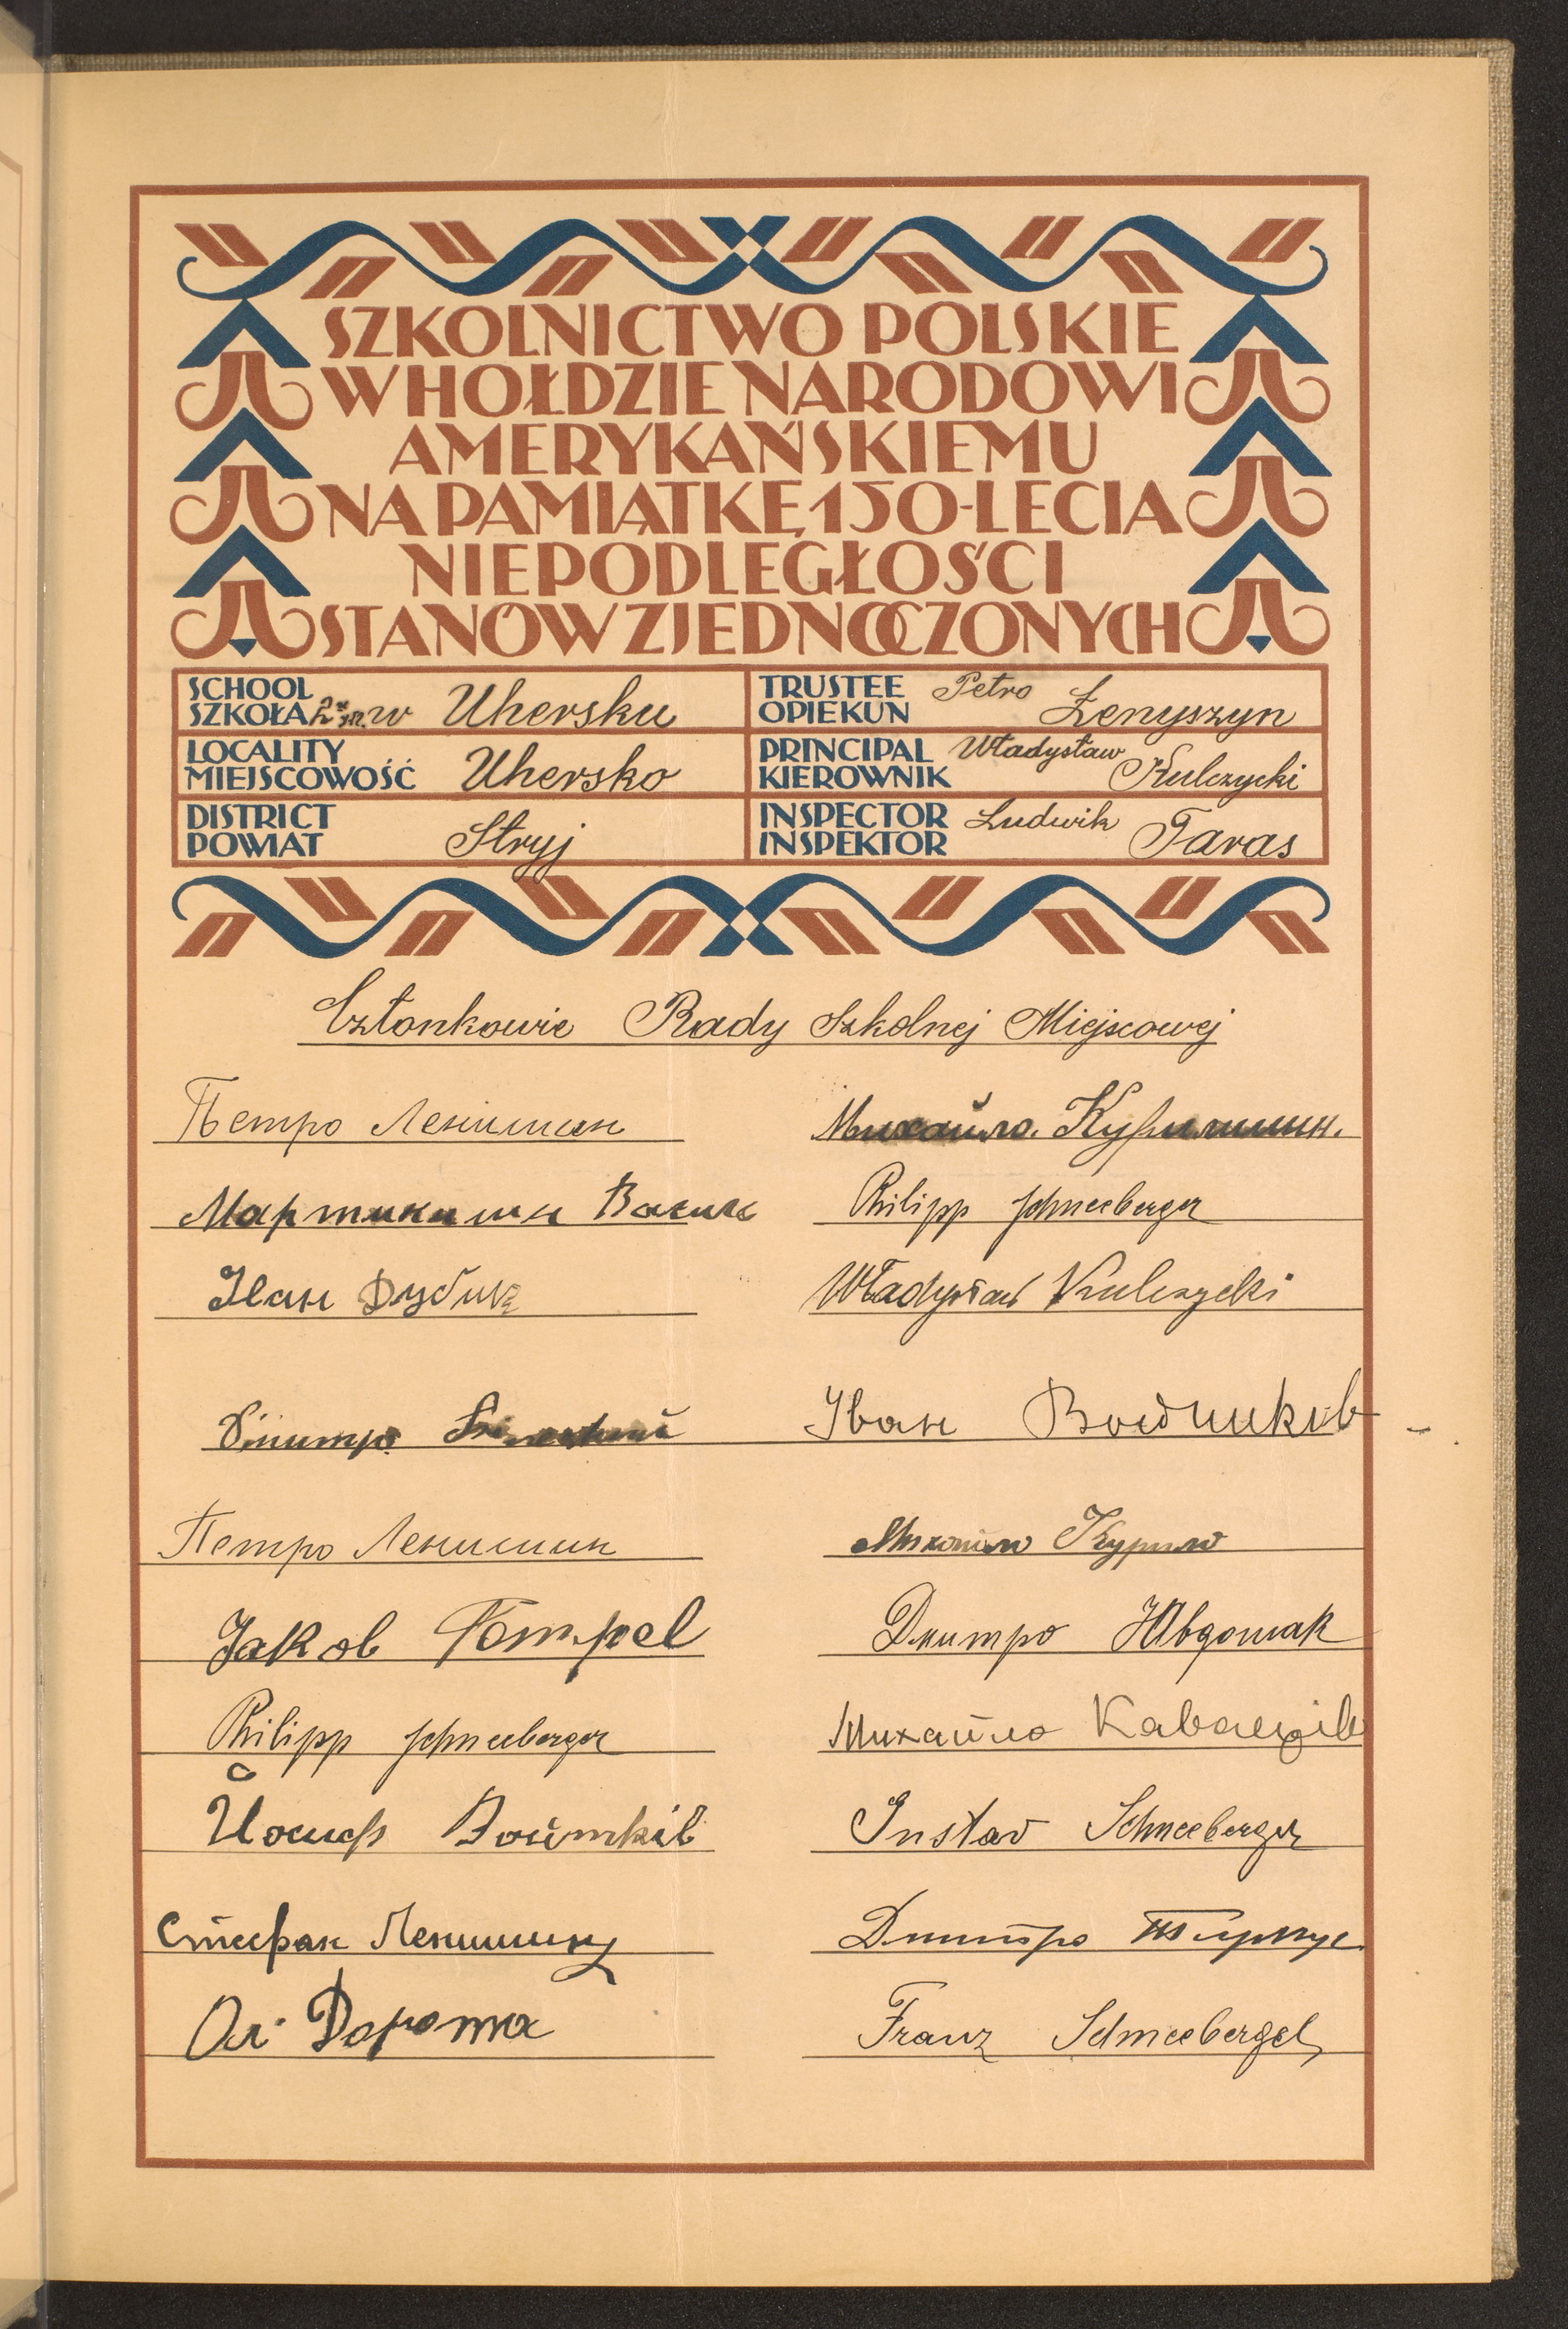 SZKOLNICTWO POLSKIE
W HOŁDZIE NARODOWI
AMERYKAŃSKIEMU
NA PAMIĄTKĘ 150-LECIA
NIEPODLEGŁOŚCI
STANÓW ZJEDNOCZONYCH
SCHOOL
SZKOŁA w Uhersku
TRUSTEE
OPIEKUN Petro Łenyszyn
LOCALITY
MIEJSCOWOŚĆ Uhersko
PRINCIPAL
KIEROWNIK Władysław Kulczycki
DISTRICT
POWIAT Stryj
INSPECTOR
INSPEKTOR Ludwik Taras
Członkowie Rady Szkolnej Miejscowej
Петро Ленишин
Михайло Курилишин.
Мартинишин
Philipp Schneeberger
Іван
Władysław Kulczycki
Дмитро
Іван
Петро Ленишин
Курило
Jakob
Дмитро
Philipp Schneeberger
Михайло
Йосиф Войтків
Gustav Schneeberger
Стефан Ленишин
Дмитро
Дорота
Franz Schneeberger